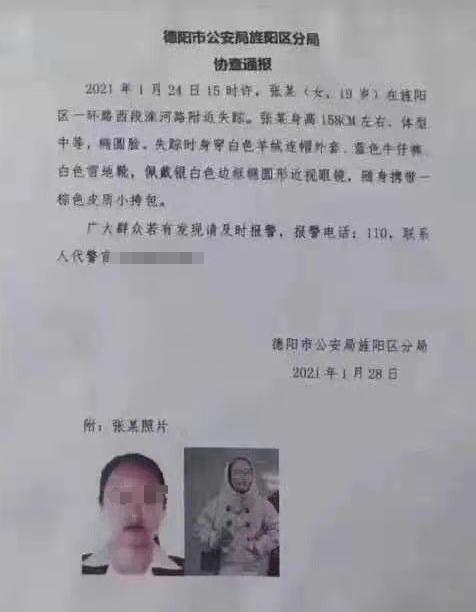 德阳市公安局旌阳区分局
协查通报
2021年1月24日15时许，张某（女、19岁）在旌阳
区一环路西段涞河路附近失踪。张某身高158CM左右、体型
中等，椭圆脸。失踪时身穿白色羊绒连帽外套、蓝色牛仔裤、
白色雪地靴，佩戴银白色边框椭圆形近视眼镜，随身携带一
棕色皮质小挎包。
广大群众若有发现请及时报警，报警电话：110，联系
人代警官
德阳市公安局旌阳区分局
2021年1月28日
附：张某照片